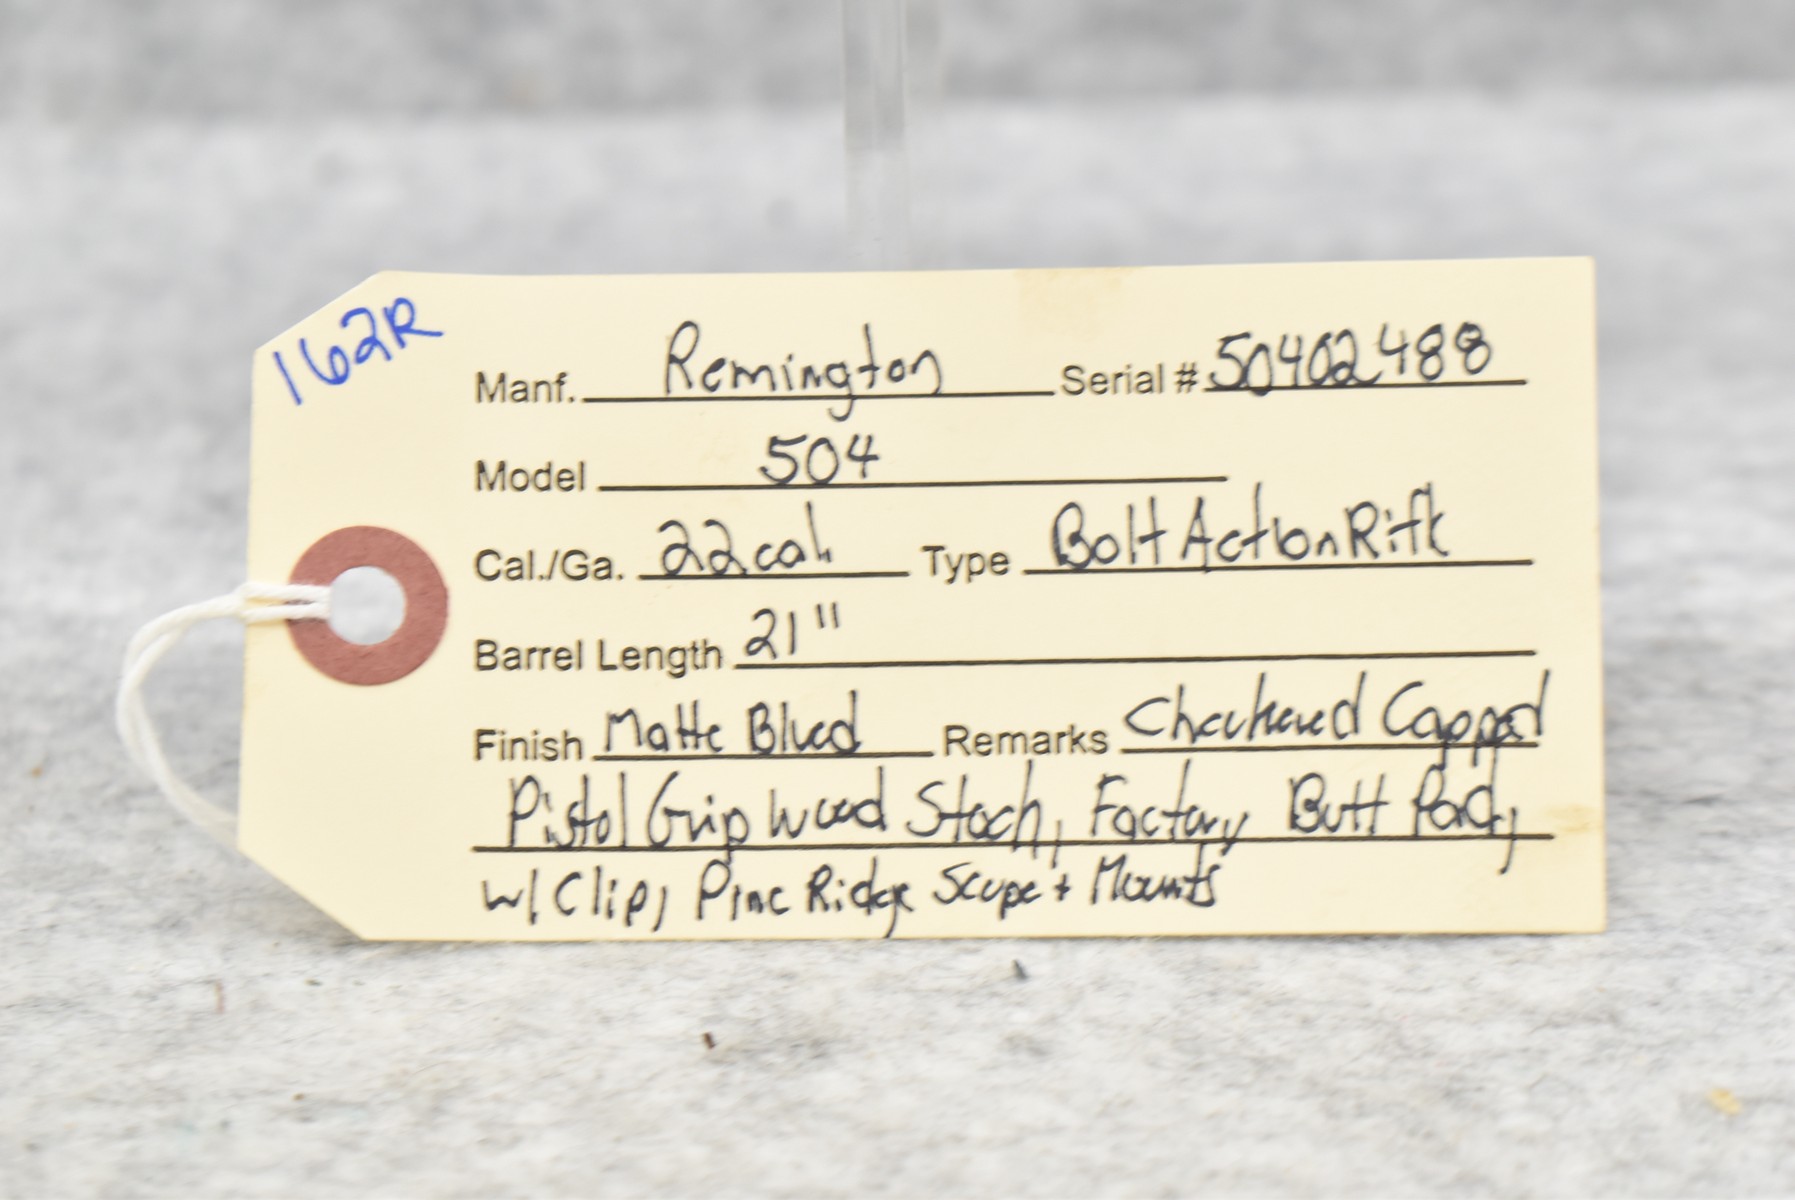 162R
Manf. Remington Serial # 50402488
Model 504
Cal./Ga. 22 cal. Type Bolt Action Rifle
Barrel Length 21"
Finish Matte Blued Remarks Checkered Capped
Pistol Grip Wood Stock, Factory Butt Pad,
w/ Clip, Pine Ridge Scope + Mounts